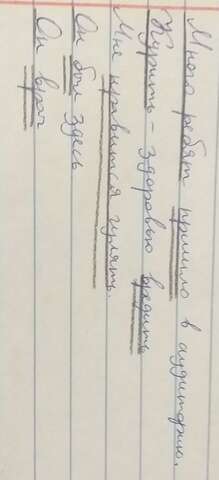 Много ребят пришло в аудиторию.
Курить – здоровью вредить
Мне нравится гулять.
Он был здесь
Он врач